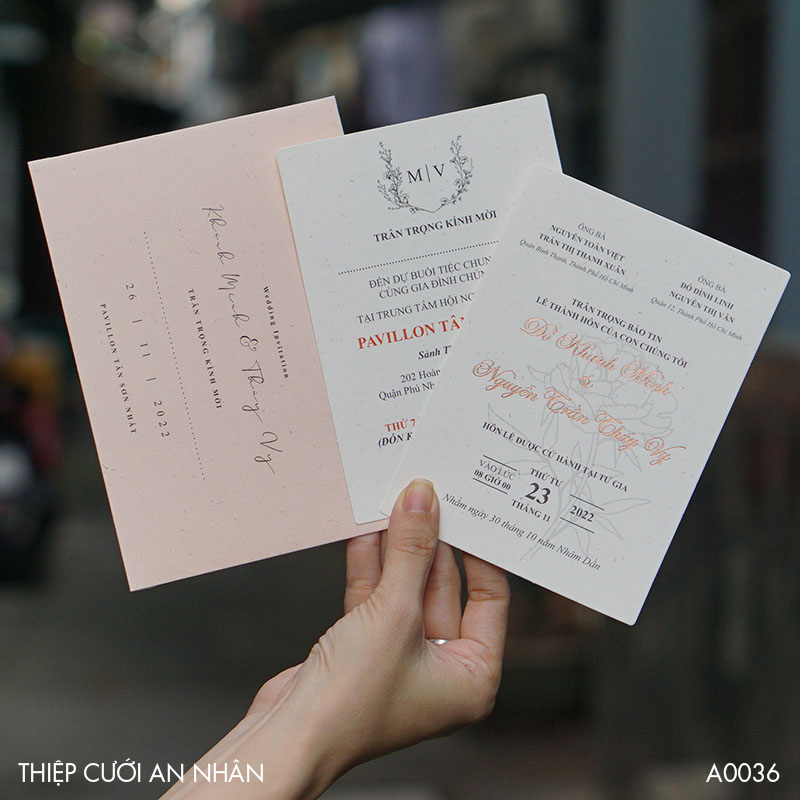 Wedding Invitation
TRÂN TRỌNG KÍNH MỜI
Khánh Minh & Thúy Vy
26 | 11 | 2022
PAVILLON TÂN SƠN NHẤT
M | V
TRÂN TRỌNG KÍNH MỜI
ĐẾN DỰ BUỔI TIỆC CHUN
CÙNG GIA ĐÌNH CHÚN
TẠI TRUNG TÂM HỘI NG
PAVILLON TÂ
Sảnh T
202 Hoàn
Quận Phú Nh
THỨ 7
(ĐÓN K
ÔNG BÀ
NGUYỄN TOÀN VIỆT
TRẦN THỊ THANH XUÂN
Quận Bình Thạnh, Thành Phố Hồ Chí Minh
ÔNG BÀ
ĐỖ ĐÌNH LINH
NGUYỄN THỊ VÂN
Quận 12, Thành Phố Hồ Chí Minh
TRÂN TRỌNG BÁO TIN
LỄ THÀNH HÔN CỦA CON CHÚNG TÔI
Đỗ Khánh Minh
&
Nguyễn Trần Thúy Vy
HÔN LỄ ĐƯỢC CỬ HÀNH TẠI TƯ GIA
VÀO LÚC
08 GIỜ 00
THỨ TƯ
23
THÁNG 11
2022
Nhằm ngày 30 tháng 10 năm Nhâm Dần
THIỆP CƯỚI AN NHÂN
A0036